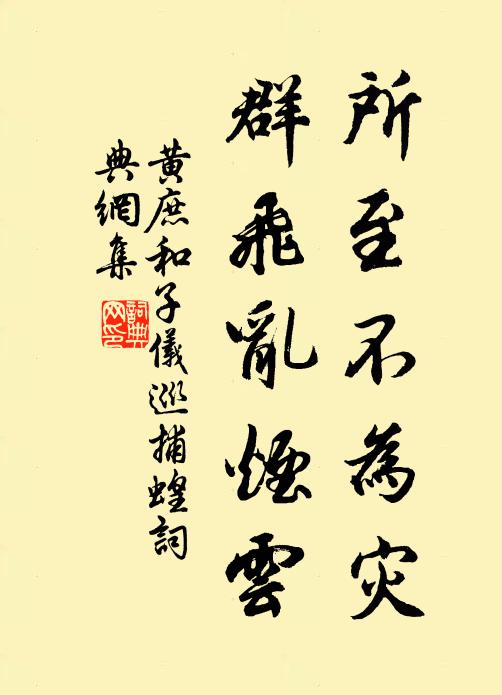 所至不為灾
群飛亂煙雲
黃庶和子儀巡捕蝗詞
典網集
詞典
网印